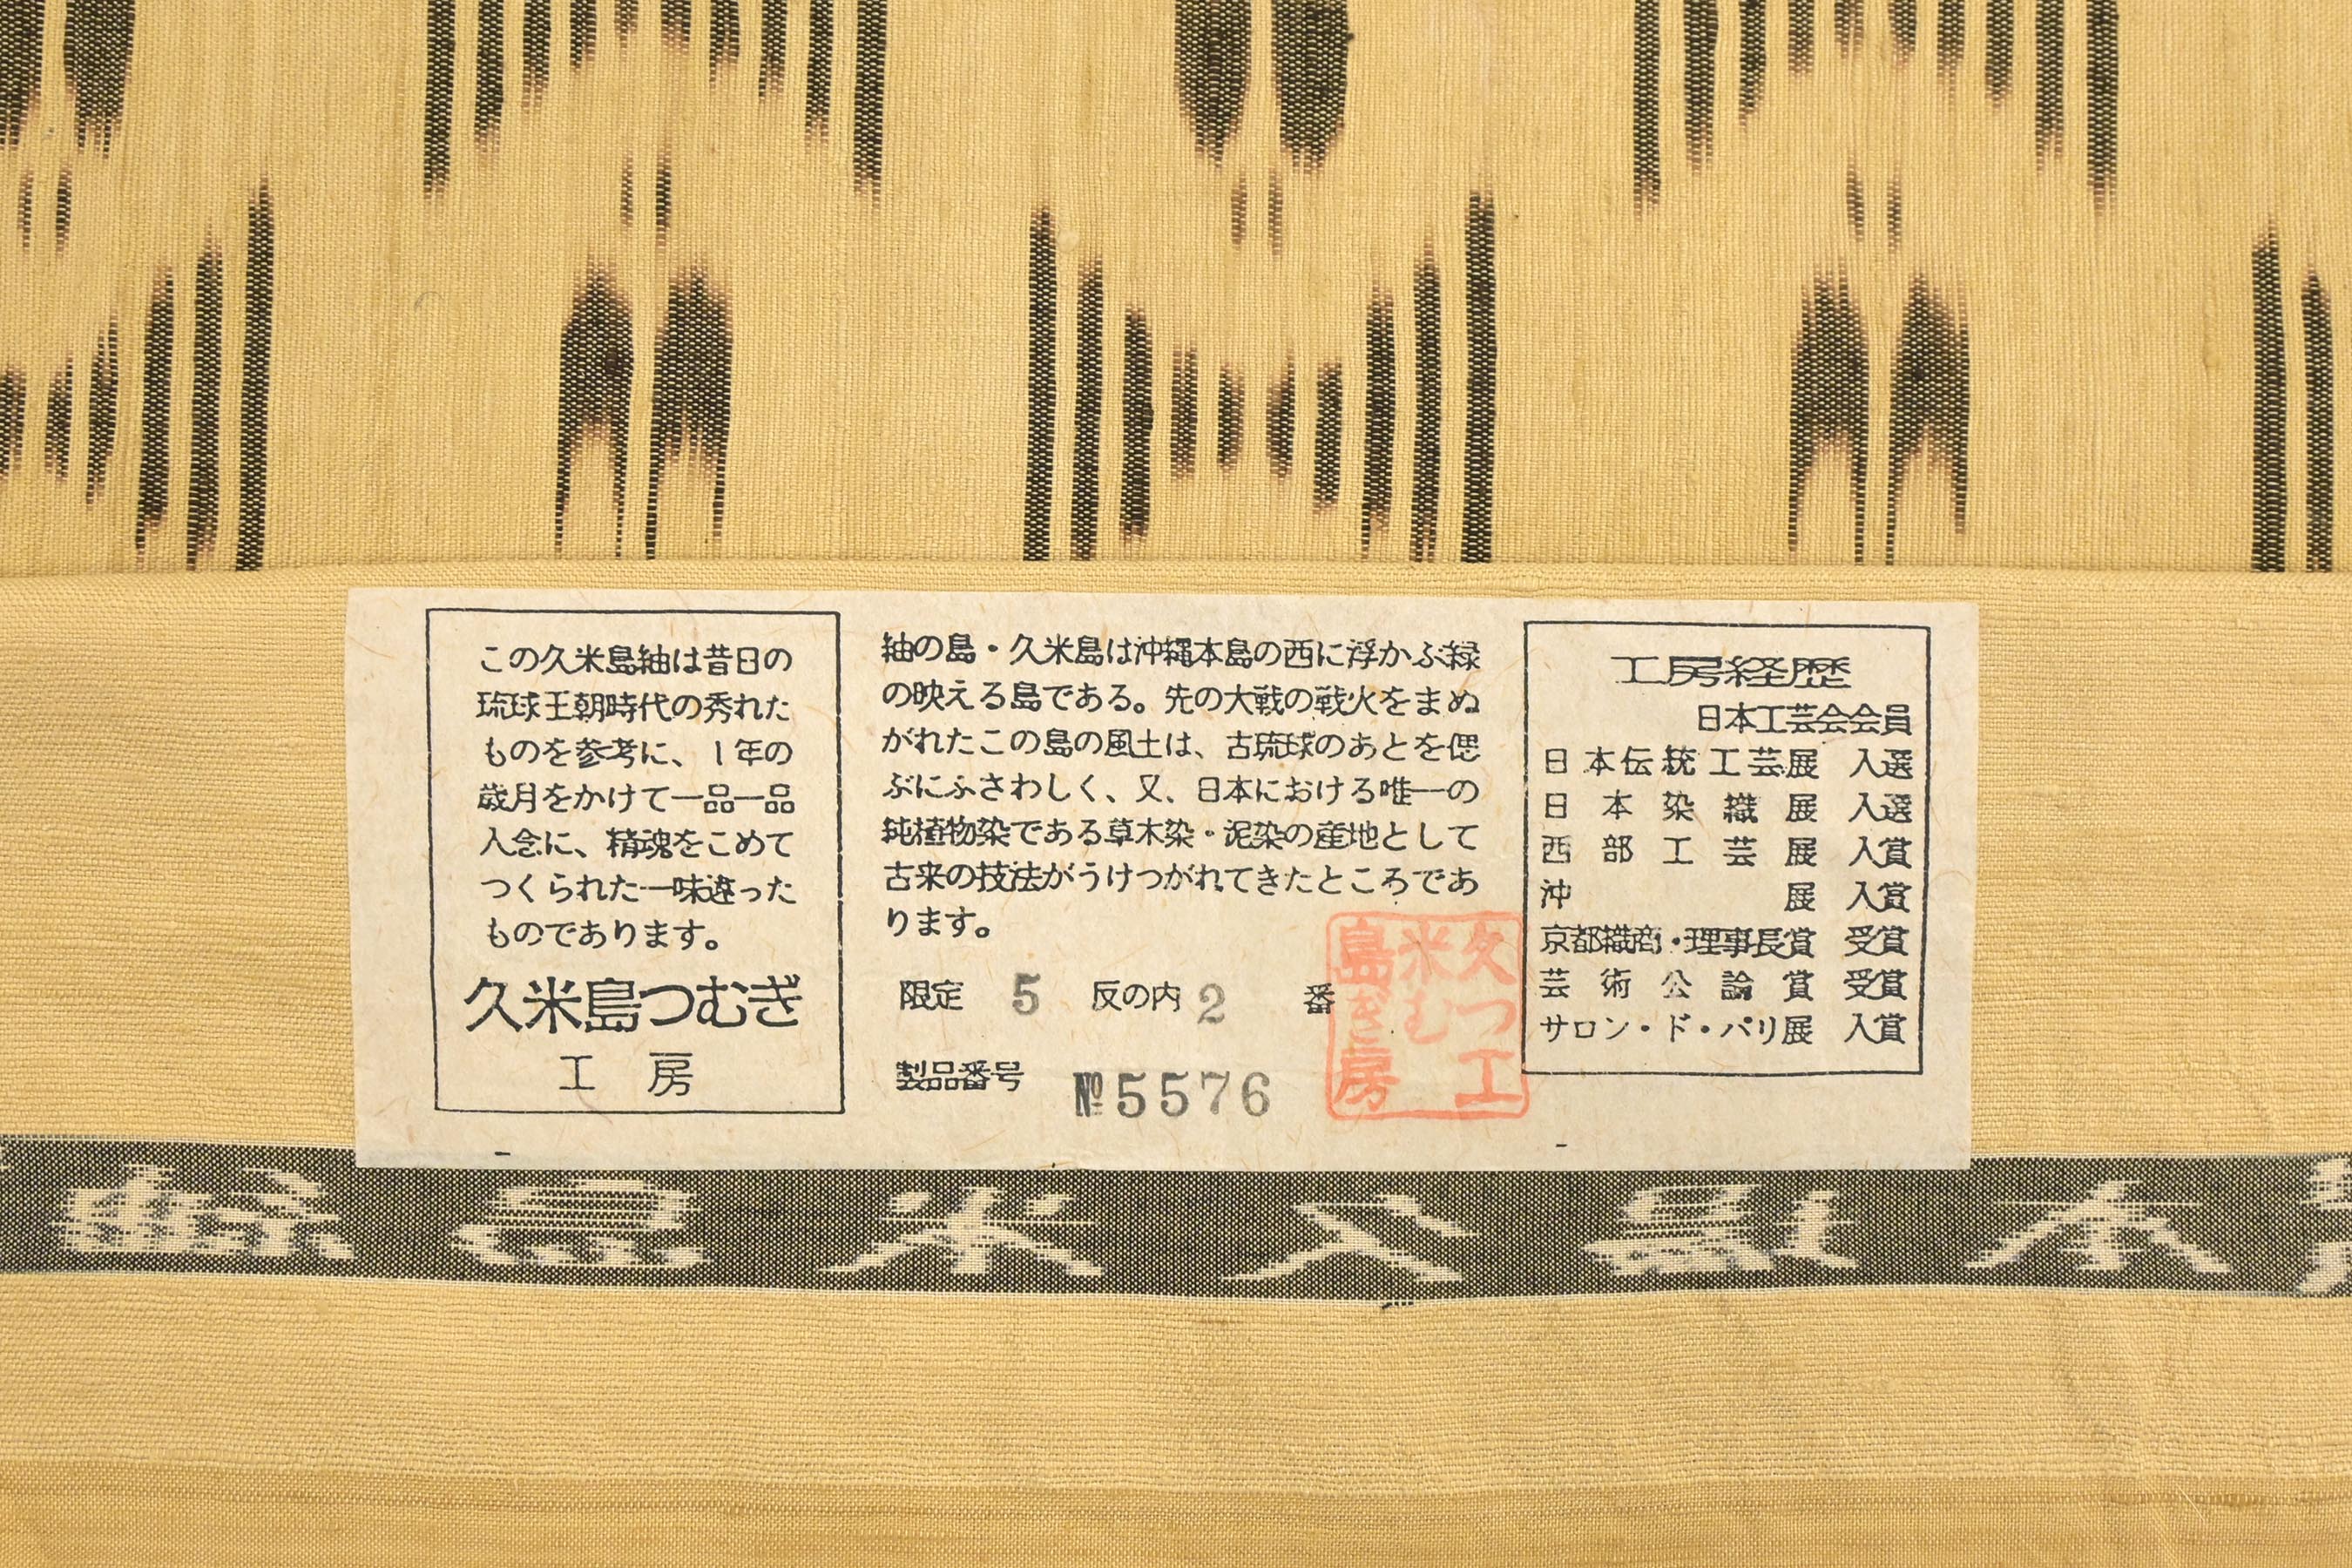 この久米島紬は昔日の
琉球王朝時代の秀れた
ものを参考に、1年の
歳月をかけて一品一品
入念に、精魂をこめて
つくられた一味違った
ものであります。
久米島つむぎ
工房
紬の島・久米島は沖縄本島の西に浮かぶ緑
の映える島である。先の大戦の戦火をまぬ
がれたこの島の風土は、古琉球のあとを偲
ぶにふさわしく、又、日本における唯一の
純植物染である草木染・泥染の産地として
古来の技法がうけつがれてきたところであ
ります。
限定 5 反の内 2 番
製品番号 №5576
久米島
つむぎ
工房
工房経歴
日本工芸会会員
日本伝統工芸展 入選
日本染織展 入選
西部工芸展 入賞
沖展 入賞
京都織商・理事長賞 受賞
芸術公論賞 受賞
サロン・ド・パリ展 入賞
紬島米久